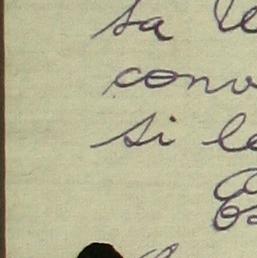 sa le
conv
si le